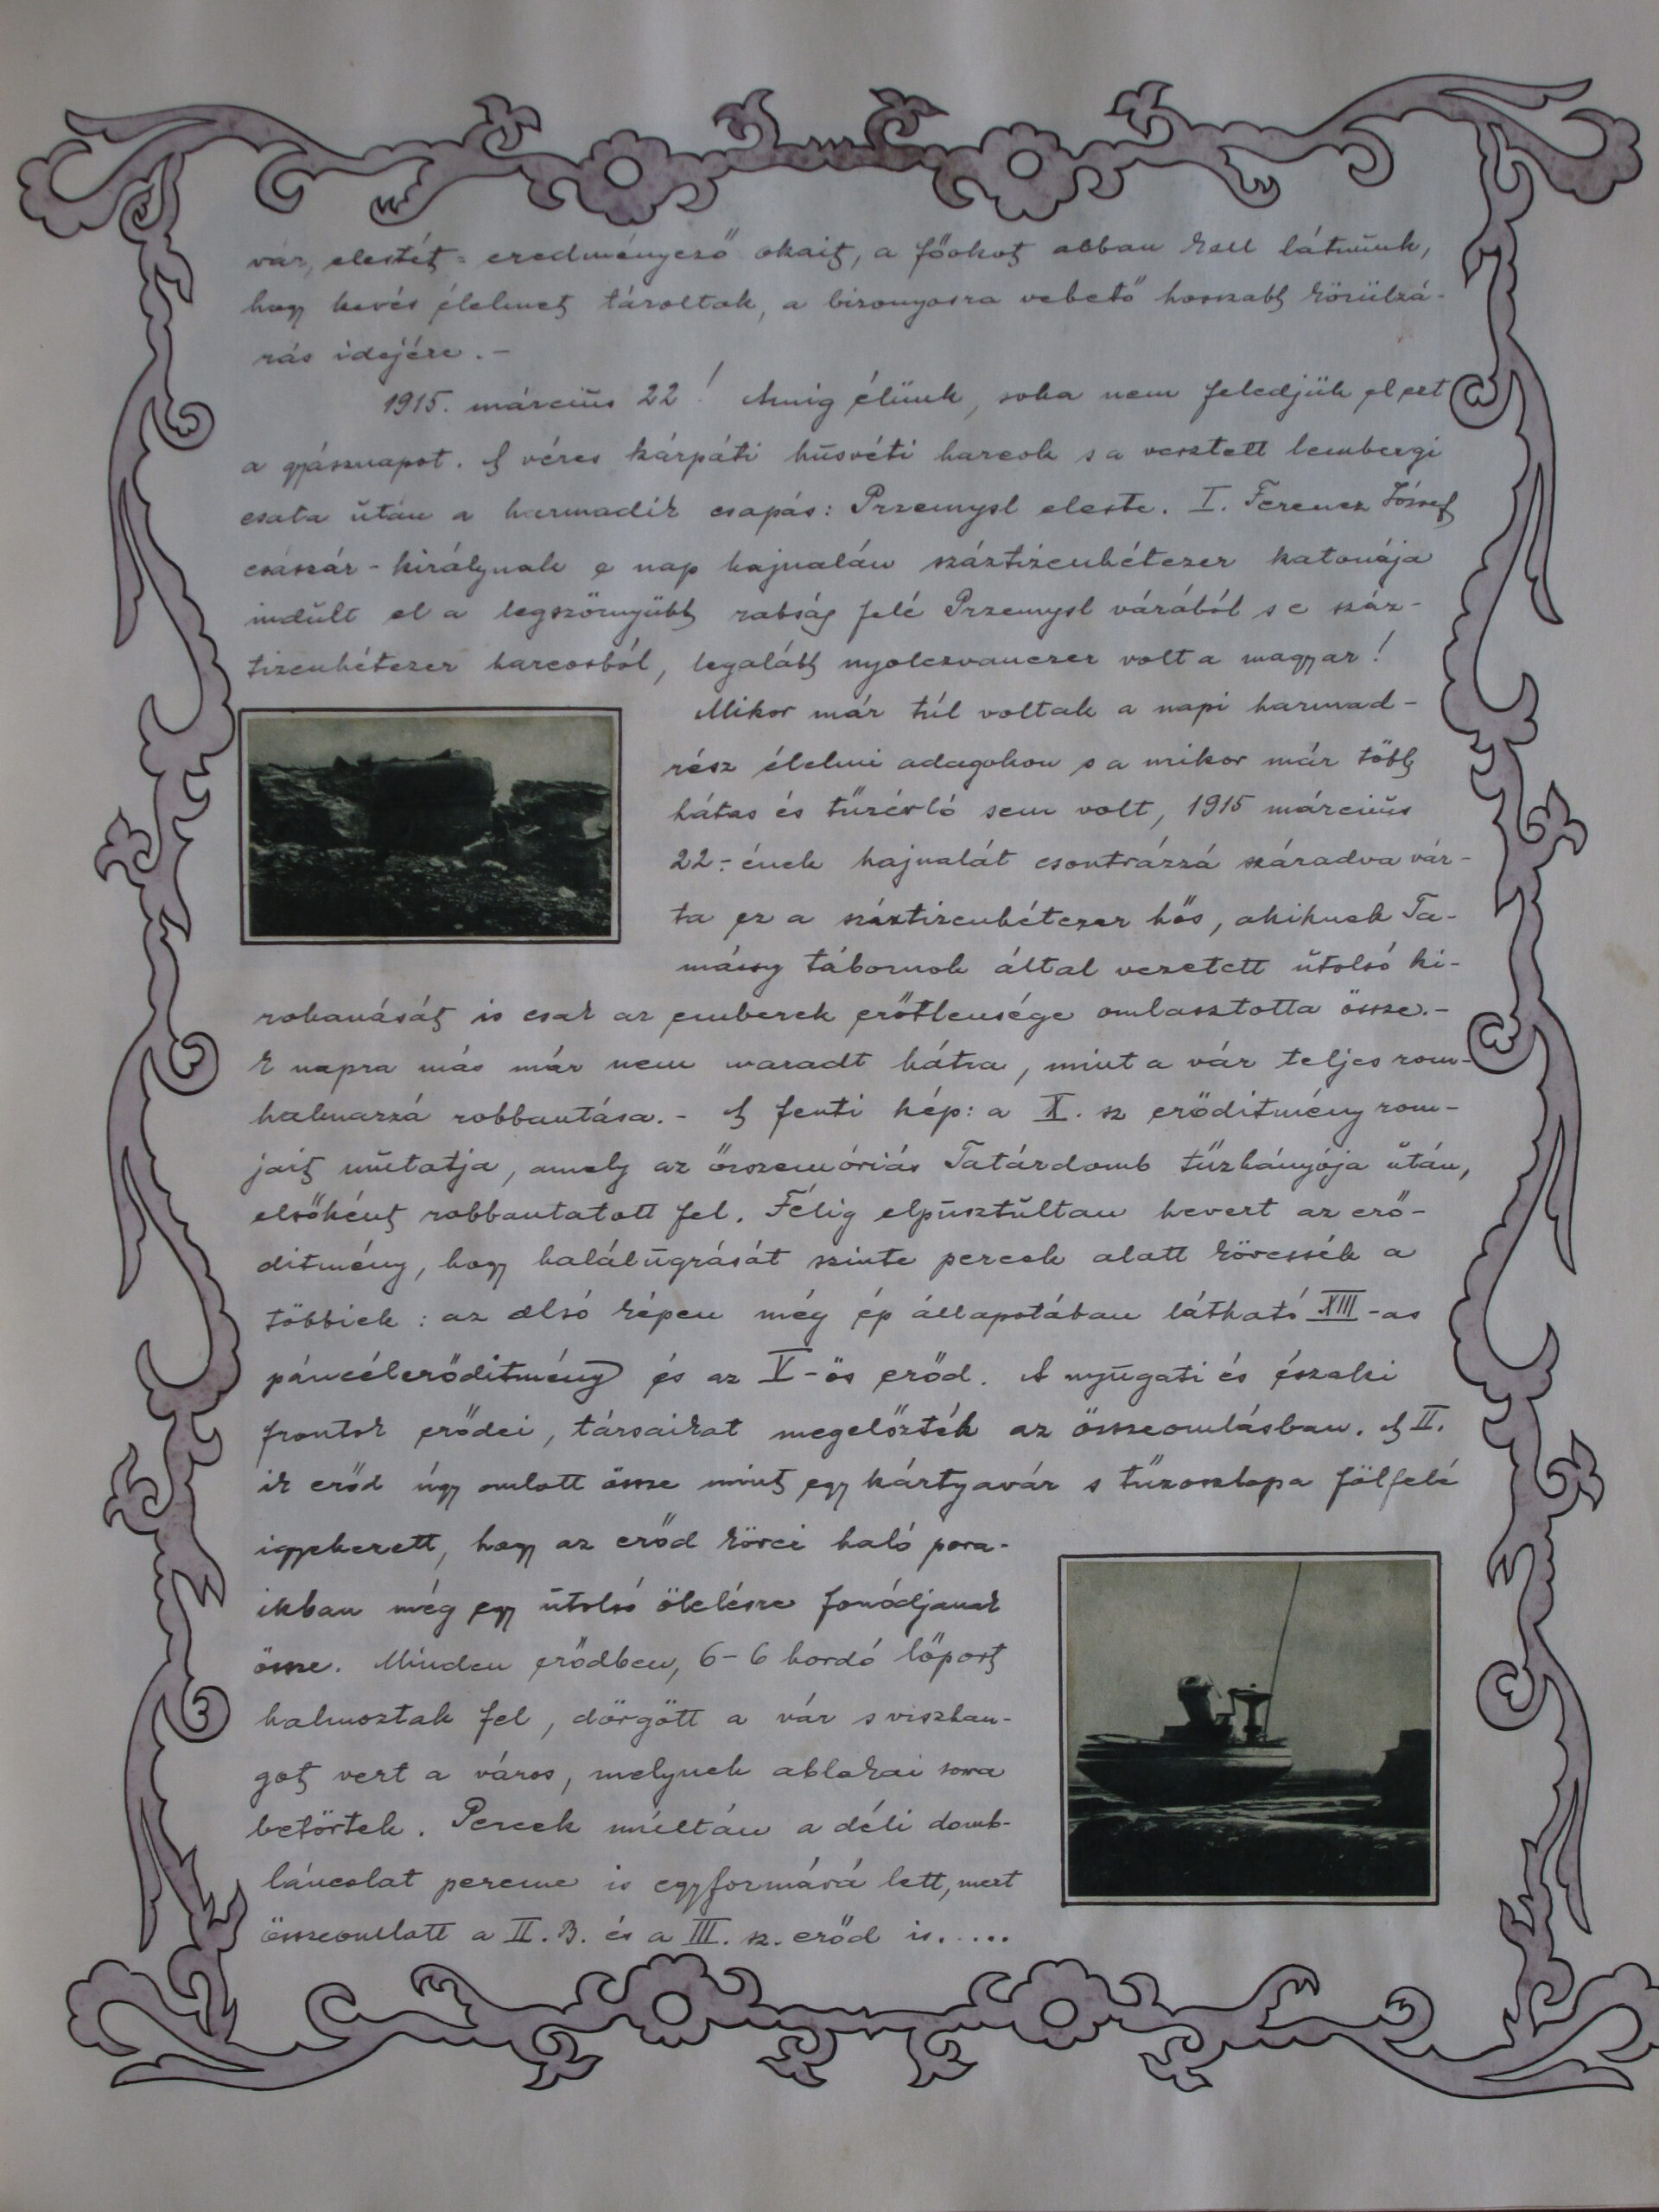 vár, elestét = eredményező okait, a főokot abban kell látnunk,
hogy kevés élelmet tároltak, a bizonyosra vehető hosszabb körülzá-
rás idejére. -
1915. március 22! Amig élünk, soha nem feledjük el ezt
a gyásznapot. A véres kárpáti húsvéti harcok s a vesztett lembergi
csata után a harmadik csapás: Przemysl eleste. I. Ferencz József
császár-királynak e nap hajnalán száztizenhétezer katonája
indúlt el a legszörnyübb rabság felé Przemysl várából s e száz-
tizenhétezer harcosból, legalább nyolczvanezer volt a magyar!
Mikor már túl voltak a napi harmad-
rész élelmi adagokon s a mikor már több
hátas és tűzérló sem volt, 1915 március
22-ének hajnalát csontvázzá száradva vár-
ta ez a száztizenhétezer hős, akiknek Ta-
mássy tábornok által vezetett utolsó ki-
rohanását is csak az emberek erőtlensége omlasztotta össze. -
E napra más már nem maradt hátra, mint a vár teljes rom-
halmazzá robbantása. - A fenti kép: a X. sz erőditmény rom-
jait mutatja, amely az összemóriás Tatárdomb tűzhányója után,
elsőként robbantatott fel. Félig elpusztultan hevert az erő-
ditmény, hogy halálugrását szinte percek alatt kövessék a
többiek: az alsó képen még ép állapotában látható XIII-as
páncélerőditmény és az V-ös erőd. A nyugati és északi
frontok erődei, társaikat megelőzték az összeomlásban. A II.
ik erőd úgy omlott össze mint egy kártyavár s tűzoszlopa fölfelé
igyekezett, hogy az erőd kövei haló pora-
ikban még egy utolsó ölelésre fonódjanak
össze. Minden erődben, 6-6 hordó lőport
halmoztak fel, dörgött a vár s viszhan-
got vert a város, melynek ablakai sorra
betörtek. Percek múltán a déli domb-
láncolat pereme is egyformává lett, mert
összeomlott a II. B. és a III. sz. erőd is.....